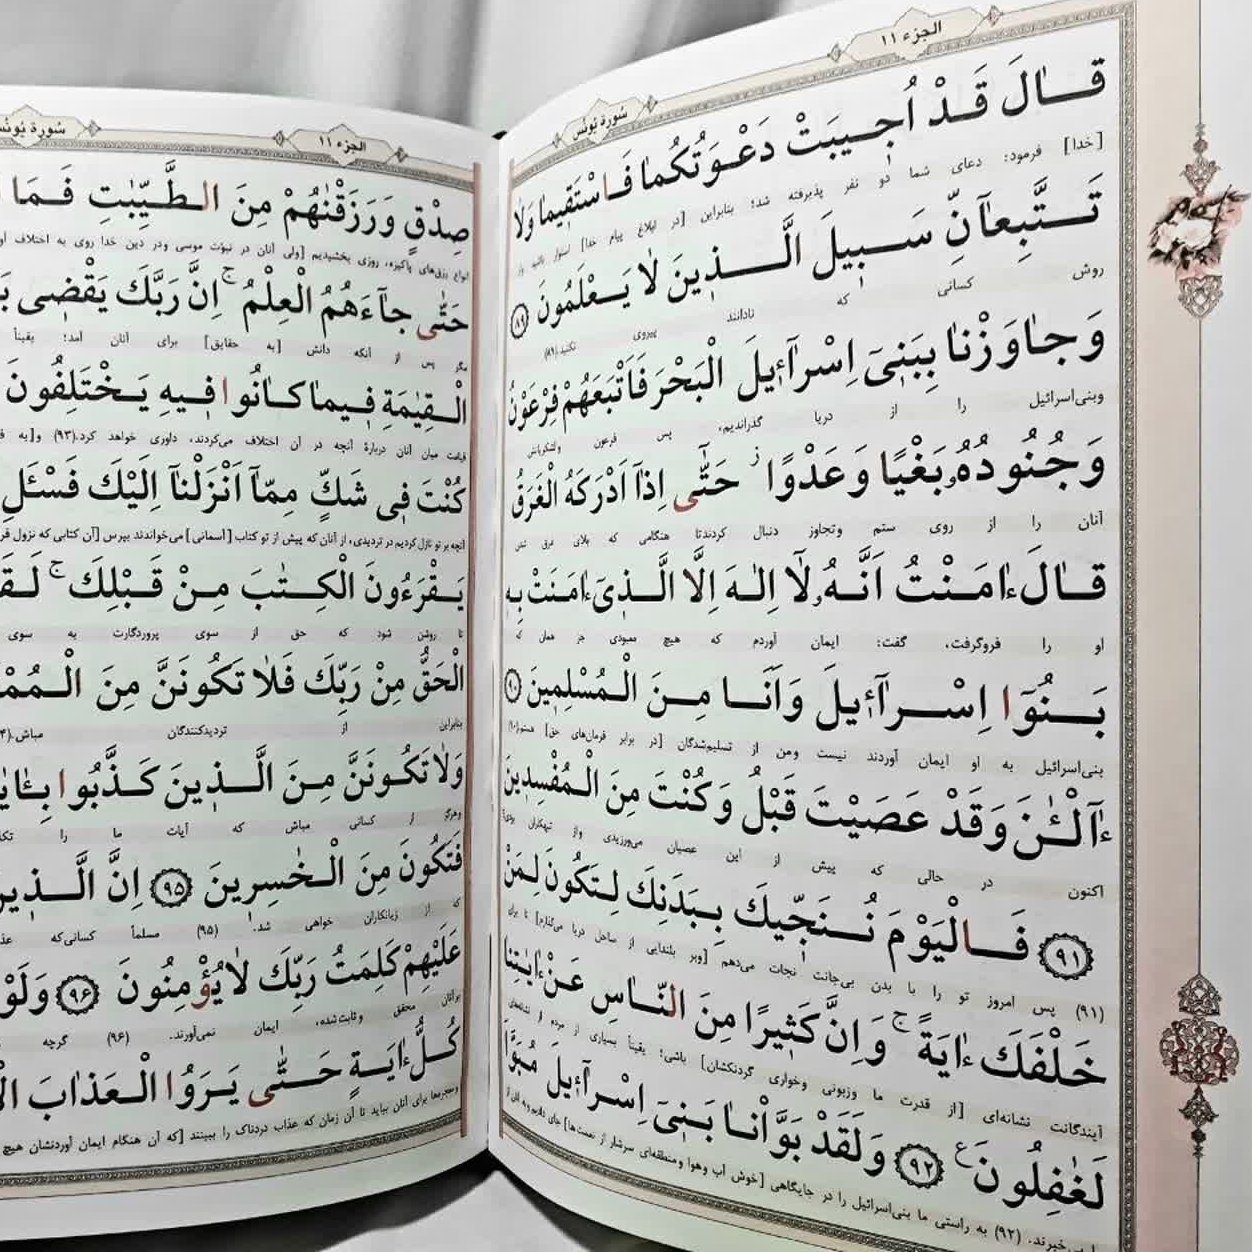 الجزء ١١
سُورة يُونُس
قـٰالَ قَدْ اُجـيبَتْ دَعْـوَتُكُمٰا فَـاسْتَقيمٰا وَلاٰ
[خدا] فرمود: دعای شما دو نفر پذیرفته شد؛ بنابراین [در ابلاغ پیام خدا] استوار باشید و از
تَـتَّبِعٰآنِّ سَـبيلَ الَّـذينَ لاٰ يَـعْلَمُونَ ٨٩
روش کسانی که نادانند پیروی نکنید.(۸۹)
وَجٰاوَزْنٰا بِبَنىٓ اِسْرٰٓاءيلَ الْبَحْرَ فَاَتْبَعَهُمْ فِرْعَوْنُ
وبنی‌اسرائیل را از دریا گذراندیم، پس فرعون ولشکریانش
وَجُنُودُهُ بَغْيًا وَعَدْوًا ز حَتّٰى اِذٰٓا اَدْرَكَهُ الْغَرَقُ
آنان را از روی ستم وتجاوز دنبال کردندتا هنگامی که بلای غرق شدن
قٰـالَ ءٰامَنْتُ اَنَّـهُ لٰٓا اِلٰـهَ اِلَّا الَّـذىٓ ءٰامَنَتْ بِهِ
او را فروگرفت، گفت: ایمان آوردم که هیچ معبودی جز همان که
بَـنُوٓا اِسْـرٰٓاءيلَ وَاَنَـا مِـنَ الْـمُسْلِمينَ ٩٠
بنی‌اسرائیل به او ایمان آوردند نیست ومن از تسلیم‌شدگان [در برابر فرمان‌های حق] هستم.(۹۰)
ءٰٓالْـٰٔنَ وَقَدْ عَصَيْتَ قَبْلُ وَكُنْتَ مِنَ الْـمُفْسِدينَ
اکنون در حالی که پیش از این عصیان می‌ورزیدی واز تبهکاران بودی؟
٩١ فَـالْيَوْمَ نُـنَجّيكَ بِـبَدَنِكَ لِـتَكُونَ لِـمَنْ
(۹۱) پس امروز تو را با بدن بی‌جانت نجات می‌دهم [وبر بلندایی از ساحل دریا می‌گذارم] تا برای
خَلْفَكَ ءٰايَةً ج وَاِنَّ كَثيرًا مِنَ النّٰاسِ عَنْ ءٰايٰتِنٰا
آیندگانت نشانه‌ای [از قدرت ما وزبونی وخواری گردنکشان] باشی؛ یقیناً بسیاری از مردم از نشانه‌های
لَغٰفِلُونَ ع ٩٢ وَلَقَدْ بَوَّاْنٰا بَنىٓ اِسْرٰٓاءيلَ مُبَوَّاَ
بی‌خبرند. (۹۲) به راستی ما بنی‌اسرائیل را در جایگاهی [خوش آب وهوا ومنطقه‌ای سرشار از نعمت‌ها] جای دادیم و به آنان از
الجزء ١١
سُورة يُونُس
صِدْقٍ وَرَزَقْنٰهُمْ مِنَ الـطَّيِّبٰتِ فَـمَا
انواع رزق‌های پاکیزه، روزی بخشیدیم [ولی آنان در نبوّت موسی ودر دین خدا روی به اختلاف
حَتّٰى جٰٓاءَهُمُ الْعِلْمُ ج اِنَّ رَبَّكَ يَقْضى
مگر پس از آنکه دانش [به حقایق] برای آنان آمد؛ یقیناً
الْـقِيٰمَةِ فيمٰا كـٰانُوا فيهِ يَـخْتَلِفُونَ
قیامت میان آنان دربارهٔ آنچه در آن اختلاف می‌کردند، داوری خواهد کرد.(۹۳) و[به
كُنْتَ فى شَكٍّ مِمّٰٓا اَنْزَلْنٰٓا اِلَيْكَ فَسْـَٔلِ
آنچه بر تو نازل کردیم در تردیدی، از آنان که پیش از تو کتاب [آسمانی] می‌خواندند بپرس [آن کتابی که نزول
يَـقْرَءُونَ الْكِـتٰبَ مِـنْ قَـبْلِكَ ج
تا روشن شود که حق از سوی پروردگارت به سوی
الْحَقُّ مِنْ رَبِّكَ فَلاٰ تَكُونَنَّ مِنَ
بنابراین از تردیدکنندگان مباش.
وَلاٰ تَكُـونَنَّ مِـنَ الَّـذينَ كَـذَّبُوا
وهرگز از کسانی مباش که آیات ما را
فَتَكُونَ مِنَ الْـخٰسِرينَ ٩٥ اِنَّ
که از زیانکاران خواهی شد. (۹۵) مسلماً کسانی‌که
عَلَيْهِمْ كَلِمَتُ رَبِّكَ لاٰ يُؤْمِنُونَ ٩٦ وَلَوْ
برآنان محقق وثابت‌شده، ایمان نمی‌آورند. (۹۶) گرچه
كُلُّ ءٰايَةٍ حَـتّٰى يَـرَوُا الْـعَذٰابَ
ومعجزه‌ها برای آنان بیاید تا آن زمان که عذاب دردناک را ببینند [که آن هنگام ایمان آوردنشان هیچ